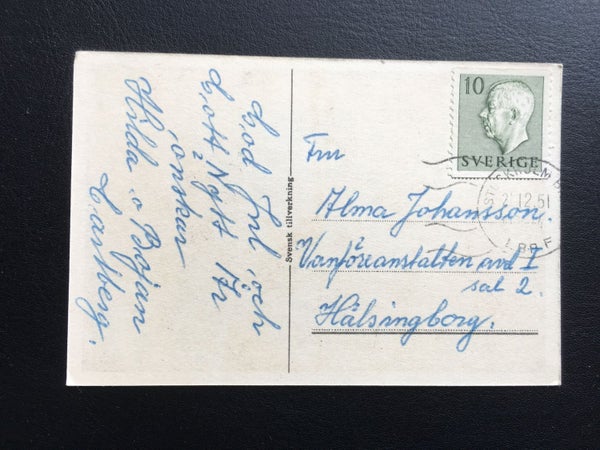 God Jul och
Gott Nytt År
önskar
Hilda o Bojan
Carlberg.
Svensk tillverkning
10
SVERIGE
2.12.51
LBR F
Fru
Alma Johansson.
Vanföreanstalten avd I
sal 2.
Hälsingborg.